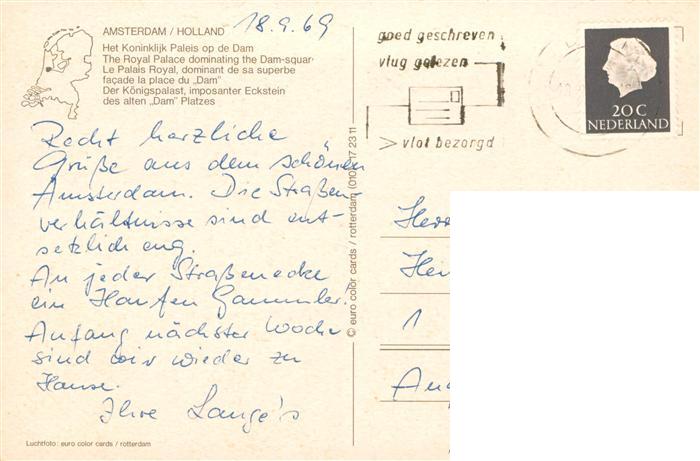 AMSTERDAM / HOLLAND
18.9.69
Het Koninklijk Paleis op de Dam
The Royal Palace dominating the Dam-squar
Le Palais Royal, dominant de sa superbe
façade la place du „Dam"
Der Königspalast, imposanter Eckstein
des alten „Dam" Platzes
Recht herzliche
Grüße aus dem schönen
Amsterdam. Die Straßen-
verhältnisse sind ent-
setzlich eng.
An jeder Straßenecke
ein Haufen Gammler!
Anfang nächster Woche
sind wir wieder zu
Hause.
Ihre Lange's
Luchtfoto: euro color cards / rotterdam
© euro color cards / rotterdam (010) 17 23 11
goed geschreven
vlug gelezen
vlot bezorgd
20 C
NEDERLAND
Herr
Hei
1